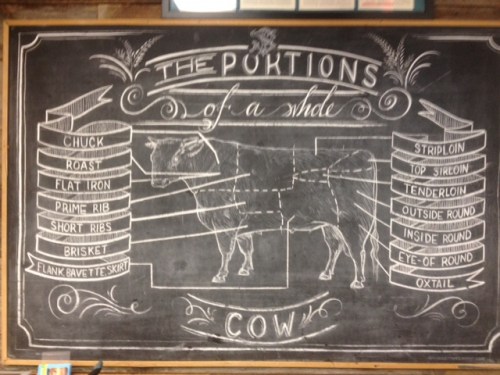 THE PORTIONS
of a whole
CHUCK
ROAST
FLAT IRON
PRIME RIB
SHORT RIBS
BRISKET
FLANK BAVETTE SKIRT
STRIPLOIN
TOP SIRLOIN
TENDERLOIN
OUTSIDE ROUND
INSIDE ROUND
EYE-OF ROUND
OXTAIL
COW